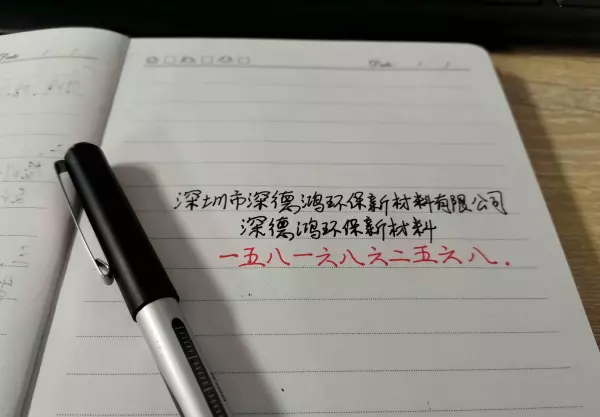 Date
深圳市深德鸿环保新材料有限公司
深德鸿环保新材料
一五八一六八六二五六八.